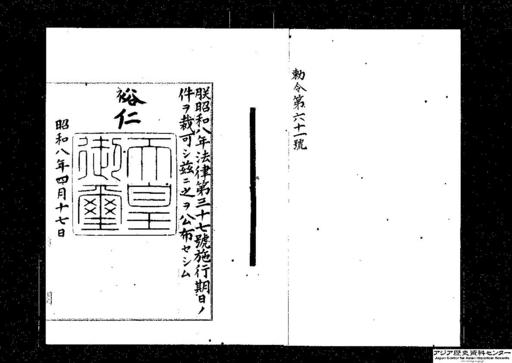 勅令第六十一號
朕昭和八年法律第三十七號施行期日ノ
件ヲ裁可シ茲ニ之ヲ公布セシム
裕仁
天皇
御璽
昭和八年四月十七日
アジア歴史資料センター
Japan Center for Asian Historical Records